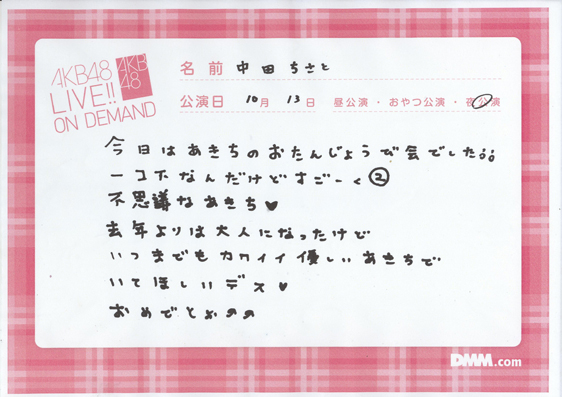 AKB48
LIVE!!
ON DEMAND
AKB
48
名前 中田ちさと
公演日 10月 13日 昼公演・おやつ公演・夜公演
今日はあきちのおたんじょうび会でした
一コ下なんだけどすごーく②
不思議なあきち♥
去年よりは大人になったけど
いつまでもカワイイ優しいあきちで
いてほしいデス♥
おめでとお
DMM.com